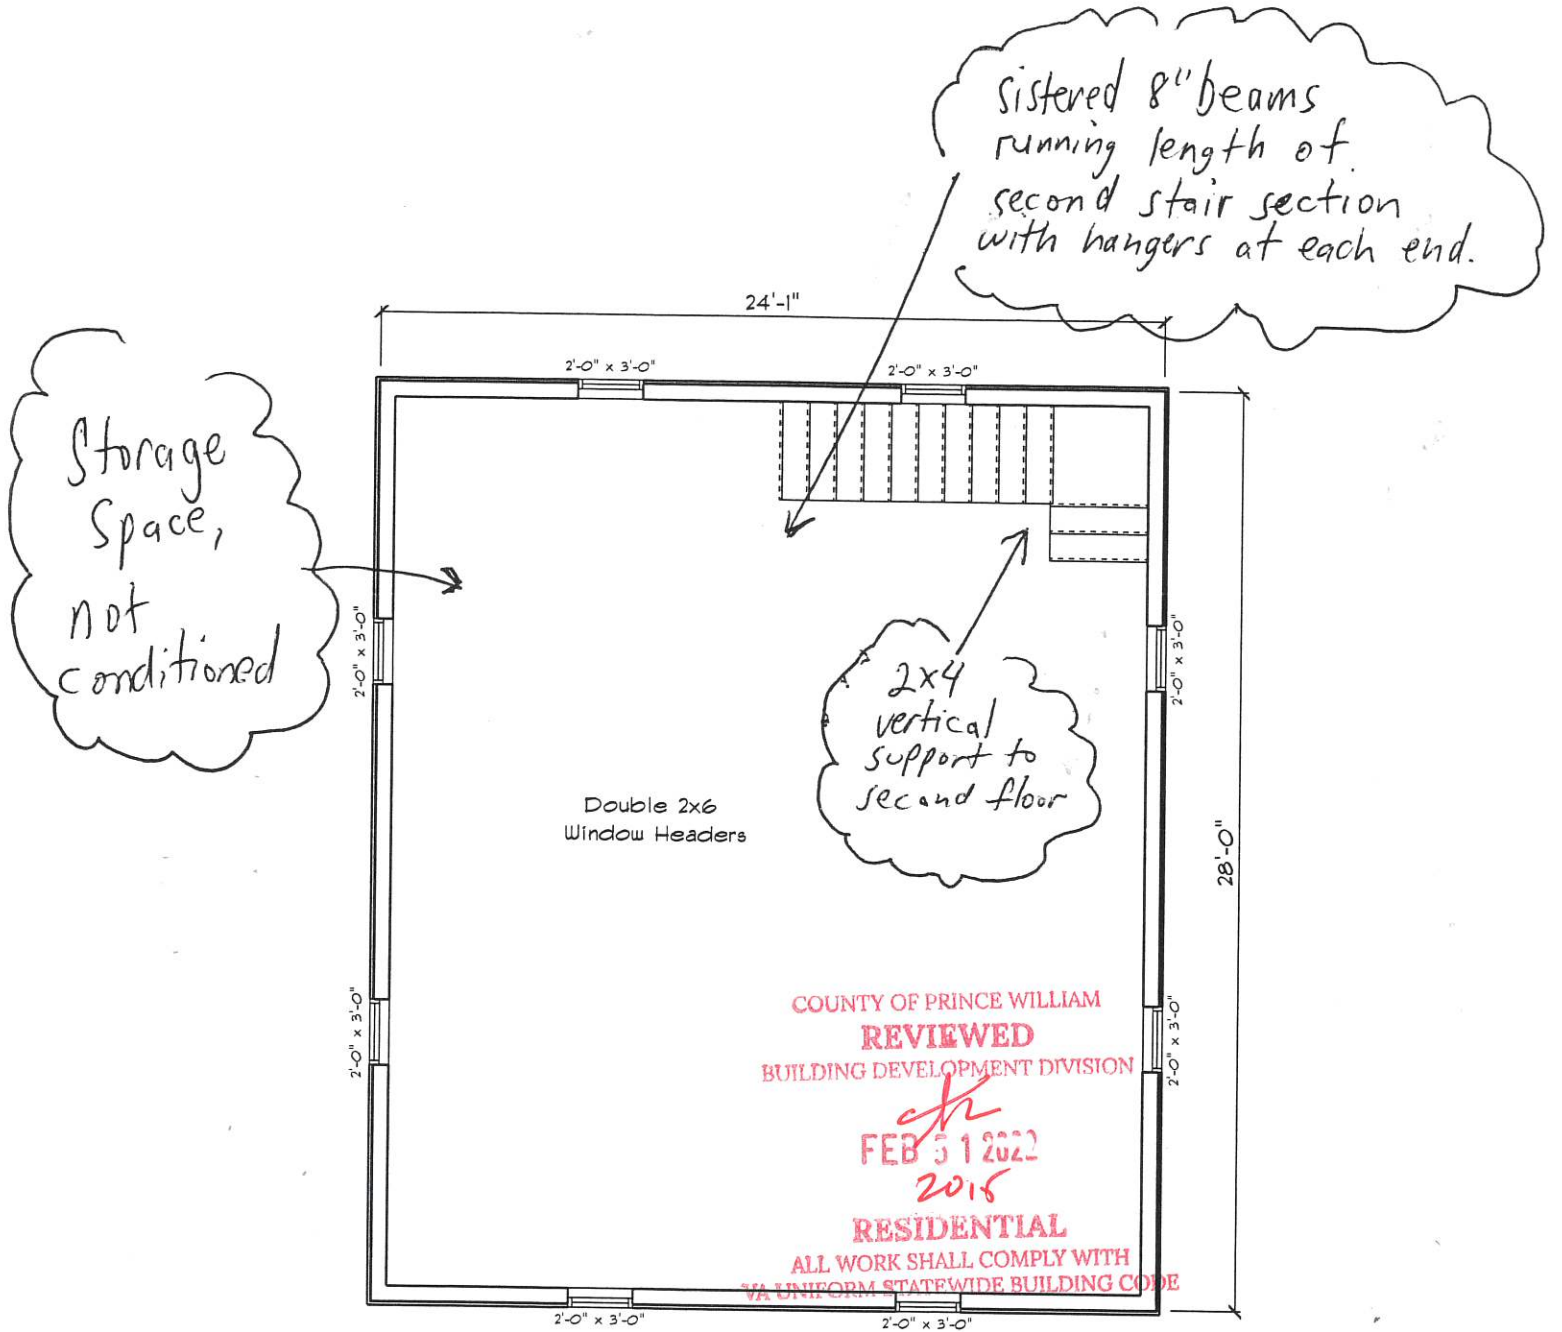 sistered 8" beams
running length of
second stair section
with hangers at each end.
24'-1"
2'-0" x 3'-0"
2'-0" x 3'-0"
Storage
Space,
not
conditioned
2'-0" x 3'-0"
2'-0" x 3'-0"
2x4
vertical
support to
second floor
Double 2x6
Window Headers
28'-0"
2'-0" x 3'-0"
2'-0" x 3'-0"
COUNTY OF PRINCE WILLIAM
REVIEWED
BUILDING DEVELOPMENT DIVISION
FEB 2022
RESIDENTIAL
ALL WORK SHALL COMPLY WITH
VA UNIFORM STATEWIDE BUILDING CODE
2'-0" x 3'-0"
2'-0" x 3'-0"